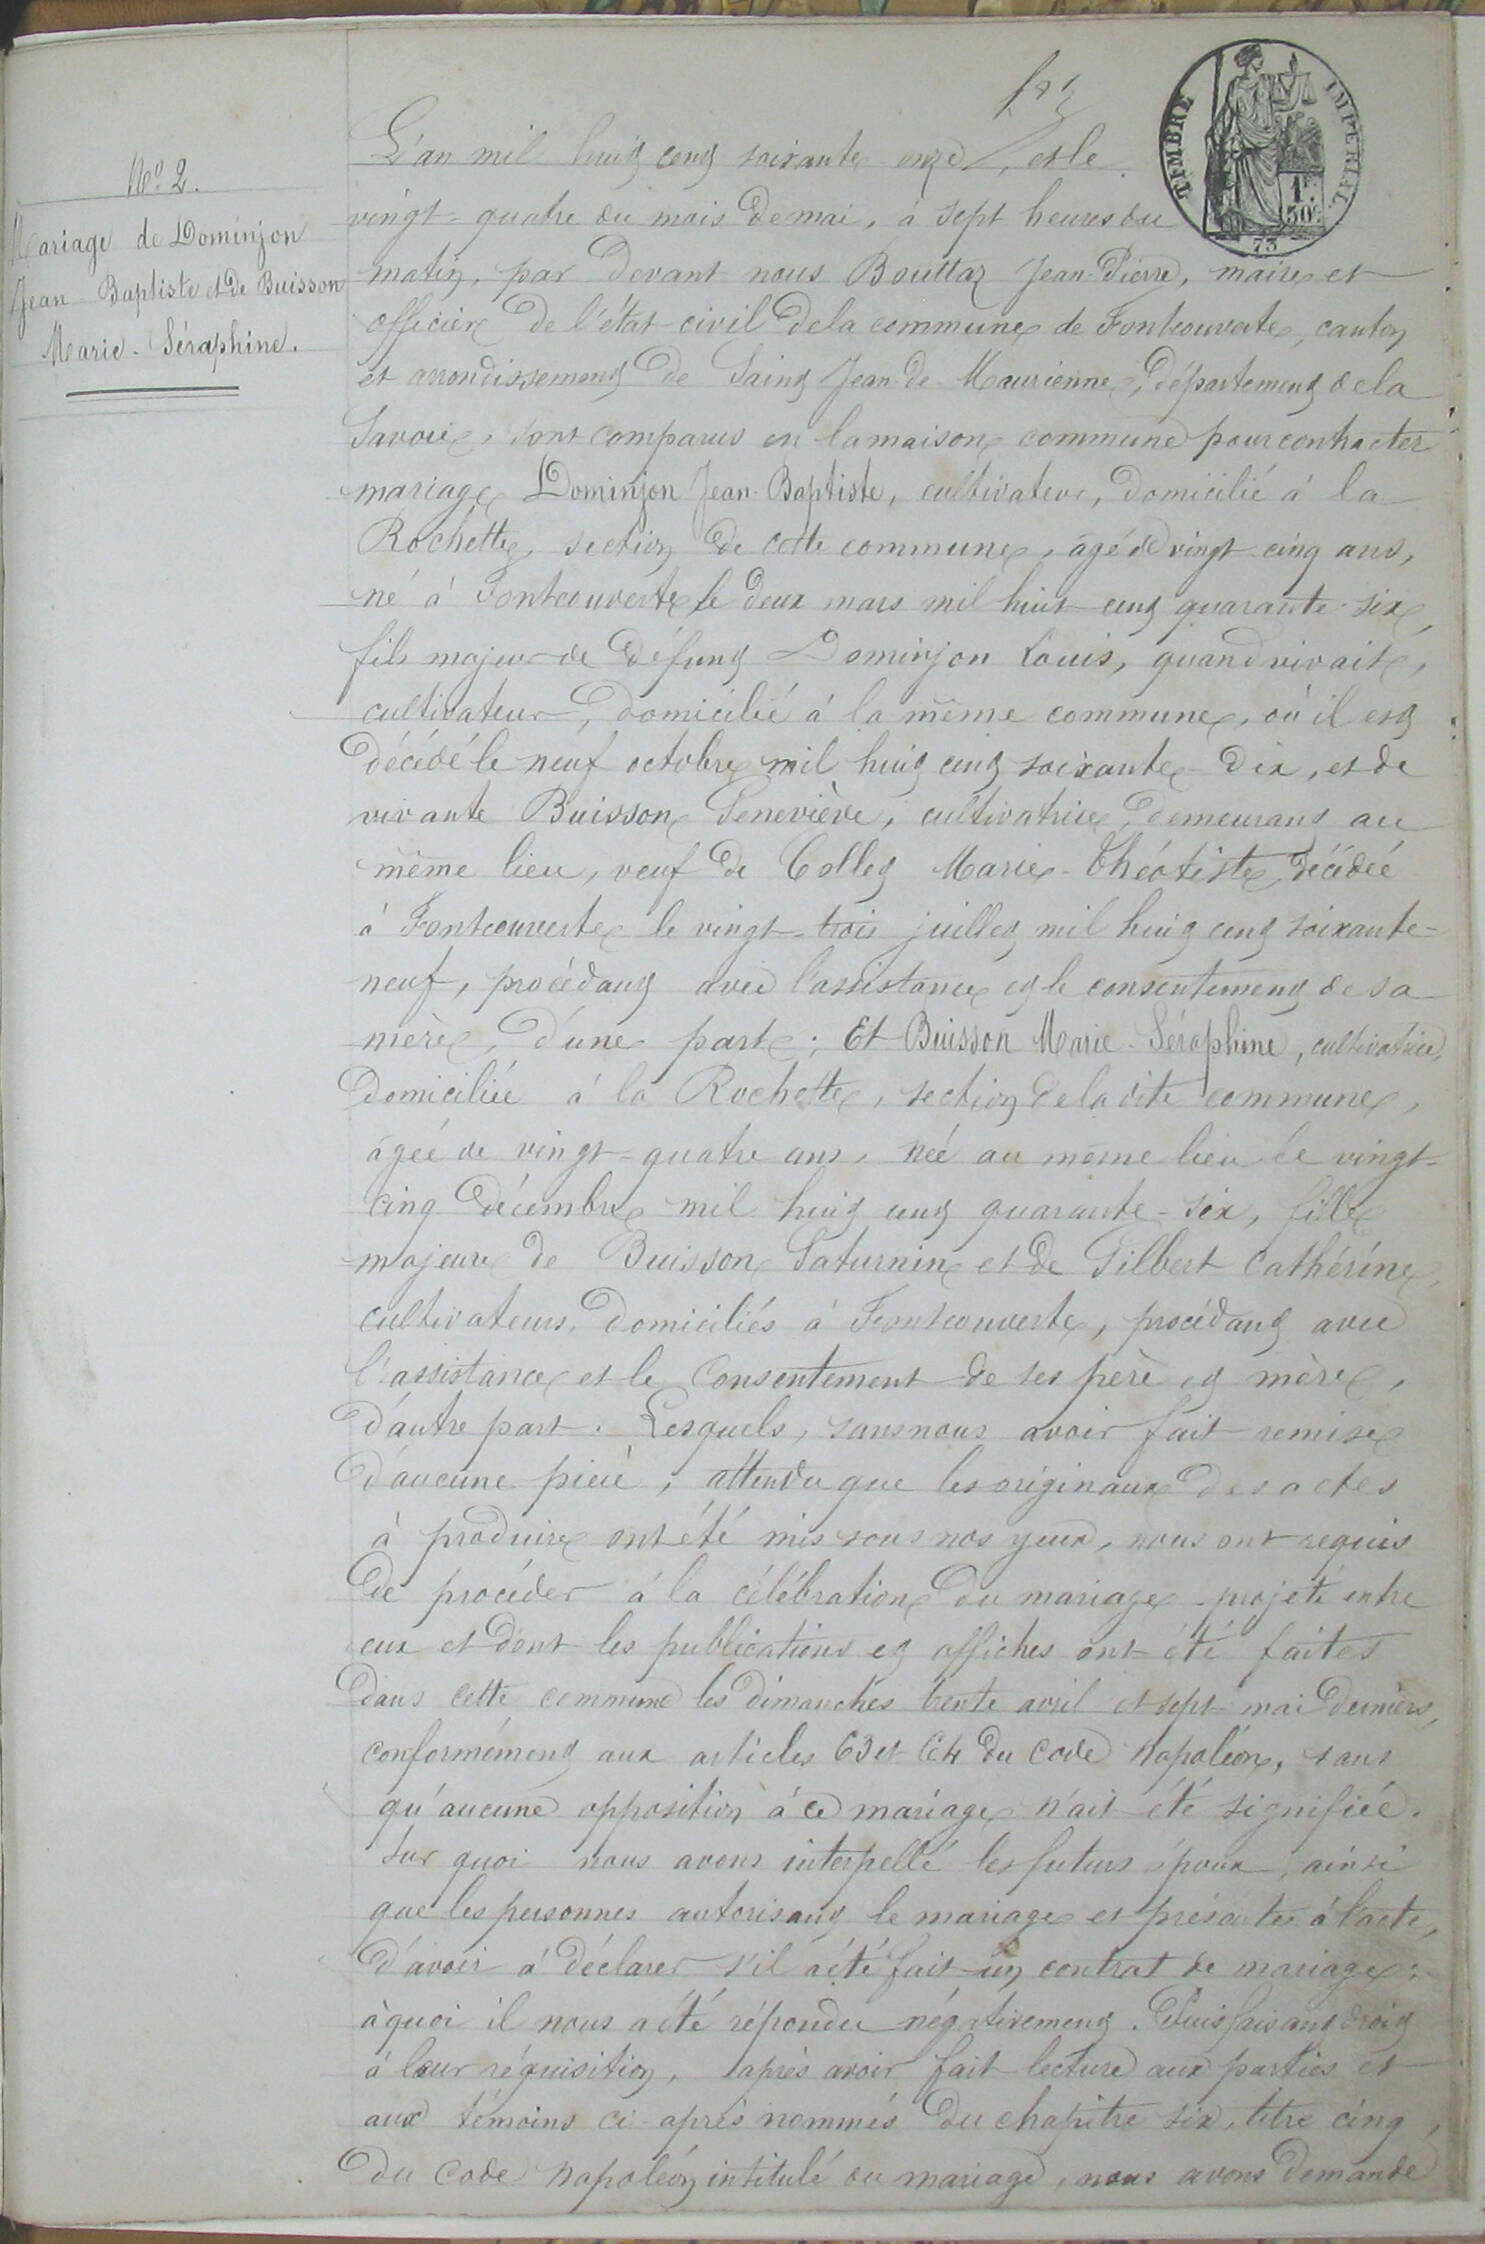 TIMBRE IMPERIAL
1F
50c
73
No 2.
Mariage de Dominjon
Jean-Baptiste et de Buisson
Marie-Séraphine.
L'an mil huit cent soixante onze, et le
vingt-quatre du mois de mai, à sept heures du
matin, par devant nous Bouttaz Jean-Pierre, maire et
officier de l'état civil de la commune de Fontcouverte, canton
et arrondissement de Saint Jean-de-Maurienne, département de la
Savoie, sont comparus en la maison commune pour contracter
mariage Dominjon Jean-Baptiste, cultivateur, domicilié à la
Rochette, section de cette commune, âgé de vingt-cinq ans,
né à Fontcouverte le deux mars mil huit cent quarante-six,
fils majeur de défunt Dominjon Louis, quand vivait,
cultivateur, domicilié à la même commune, où il est
décédé le neuf octobre mil huit cent soixante-dix, et de
vivante Buisson Geneviève, cultivatrice, demeurant au
même lieu, veuf de Collet Marie-Théotiste, décédée
à Fontcouverte le vingt-trois juillet mil huit cent soixante-
neuf, procédant avec l'assistance et le consentement de sa
mère, d'une part; Et Buisson Marie-Séraphine, cultivatrice,
domiciliée à la Rochette, section de la dite commune,
âgée de vingt-quatre ans, née au même lieu le vingt-
cinq décembre mil huit cent quarante-six, fille
majeure de Buisson Saturnin et de Gilbert Cathérine,
cultivateurs, domiciliés à Fontcouverte, procédant avec
l'assistance et le consentement de ses père et mère,
d'autre part. Lesquels, sans nous avoir fait remise
d'aucune pièce, attendu que les originaux des actes
à produire ont été mis sous nos yeux, nous ont requis
de procéder à la célébration du mariage projeté entre
eux et dont les publications et affiches ont été faites
dans cette commune les dimanches trente avril et sept mai derniers,
conformément aux articles 63 et 64 du Code Napoléon, sans
qu'aucune opposition à ce mariage n'ait été signifiée.
Sur quoi nous avons interpellé les futurs époux, ainsi
que les personnes autorisant le mariage et présentes à l'acte,
d'avoir à déclarer s'il a été fait un contrat de mariage:
à quoi il nous a été répondu négativement. Puis faisant droit
à leur réquisition, après avoir fait lecture aux parties et
aux témoins ci-après nommés du chapitre six, titre cinq,
du Code Napoléon intitulé du mariage, nous avons demandé